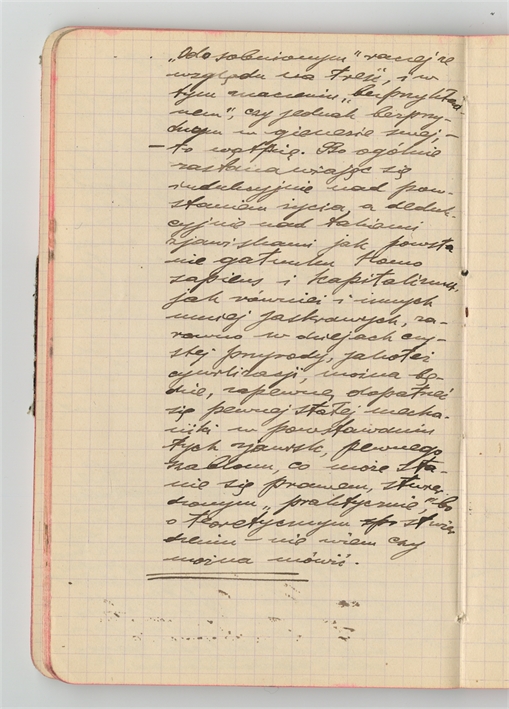 „Odosobnionym" raczej ze
względu na treść, i w
tym znaczeniu „bezprzykład-
nem", czy jednak bezprzy-
w genezie swej, –
– to wątpię. Bo ogólnie
zastanawiając się
indukcyjnie nad pow-
staniem życia, a deduk-
cyjnie nad takiemi
zjawiskami jak powsta
nie gatunku Homo
sapiens i kapitalizmu,
jak również i innych
mniej jaskrawych, za-
równo w dziejach czy-
stej przyrody, jakoteż
cywilizacji, można bę-
dzie, zapewne, dopatrzeć
się pewnej stałej mecha-
niki w powstawaniu
tych zjawisk, pewnego
szablonu, co może sta-
nie się prawem, stwier
dzonym „praktycznie", bo
o teoretycznym stwier
dzeniu – nie wiem czy
można mówić.